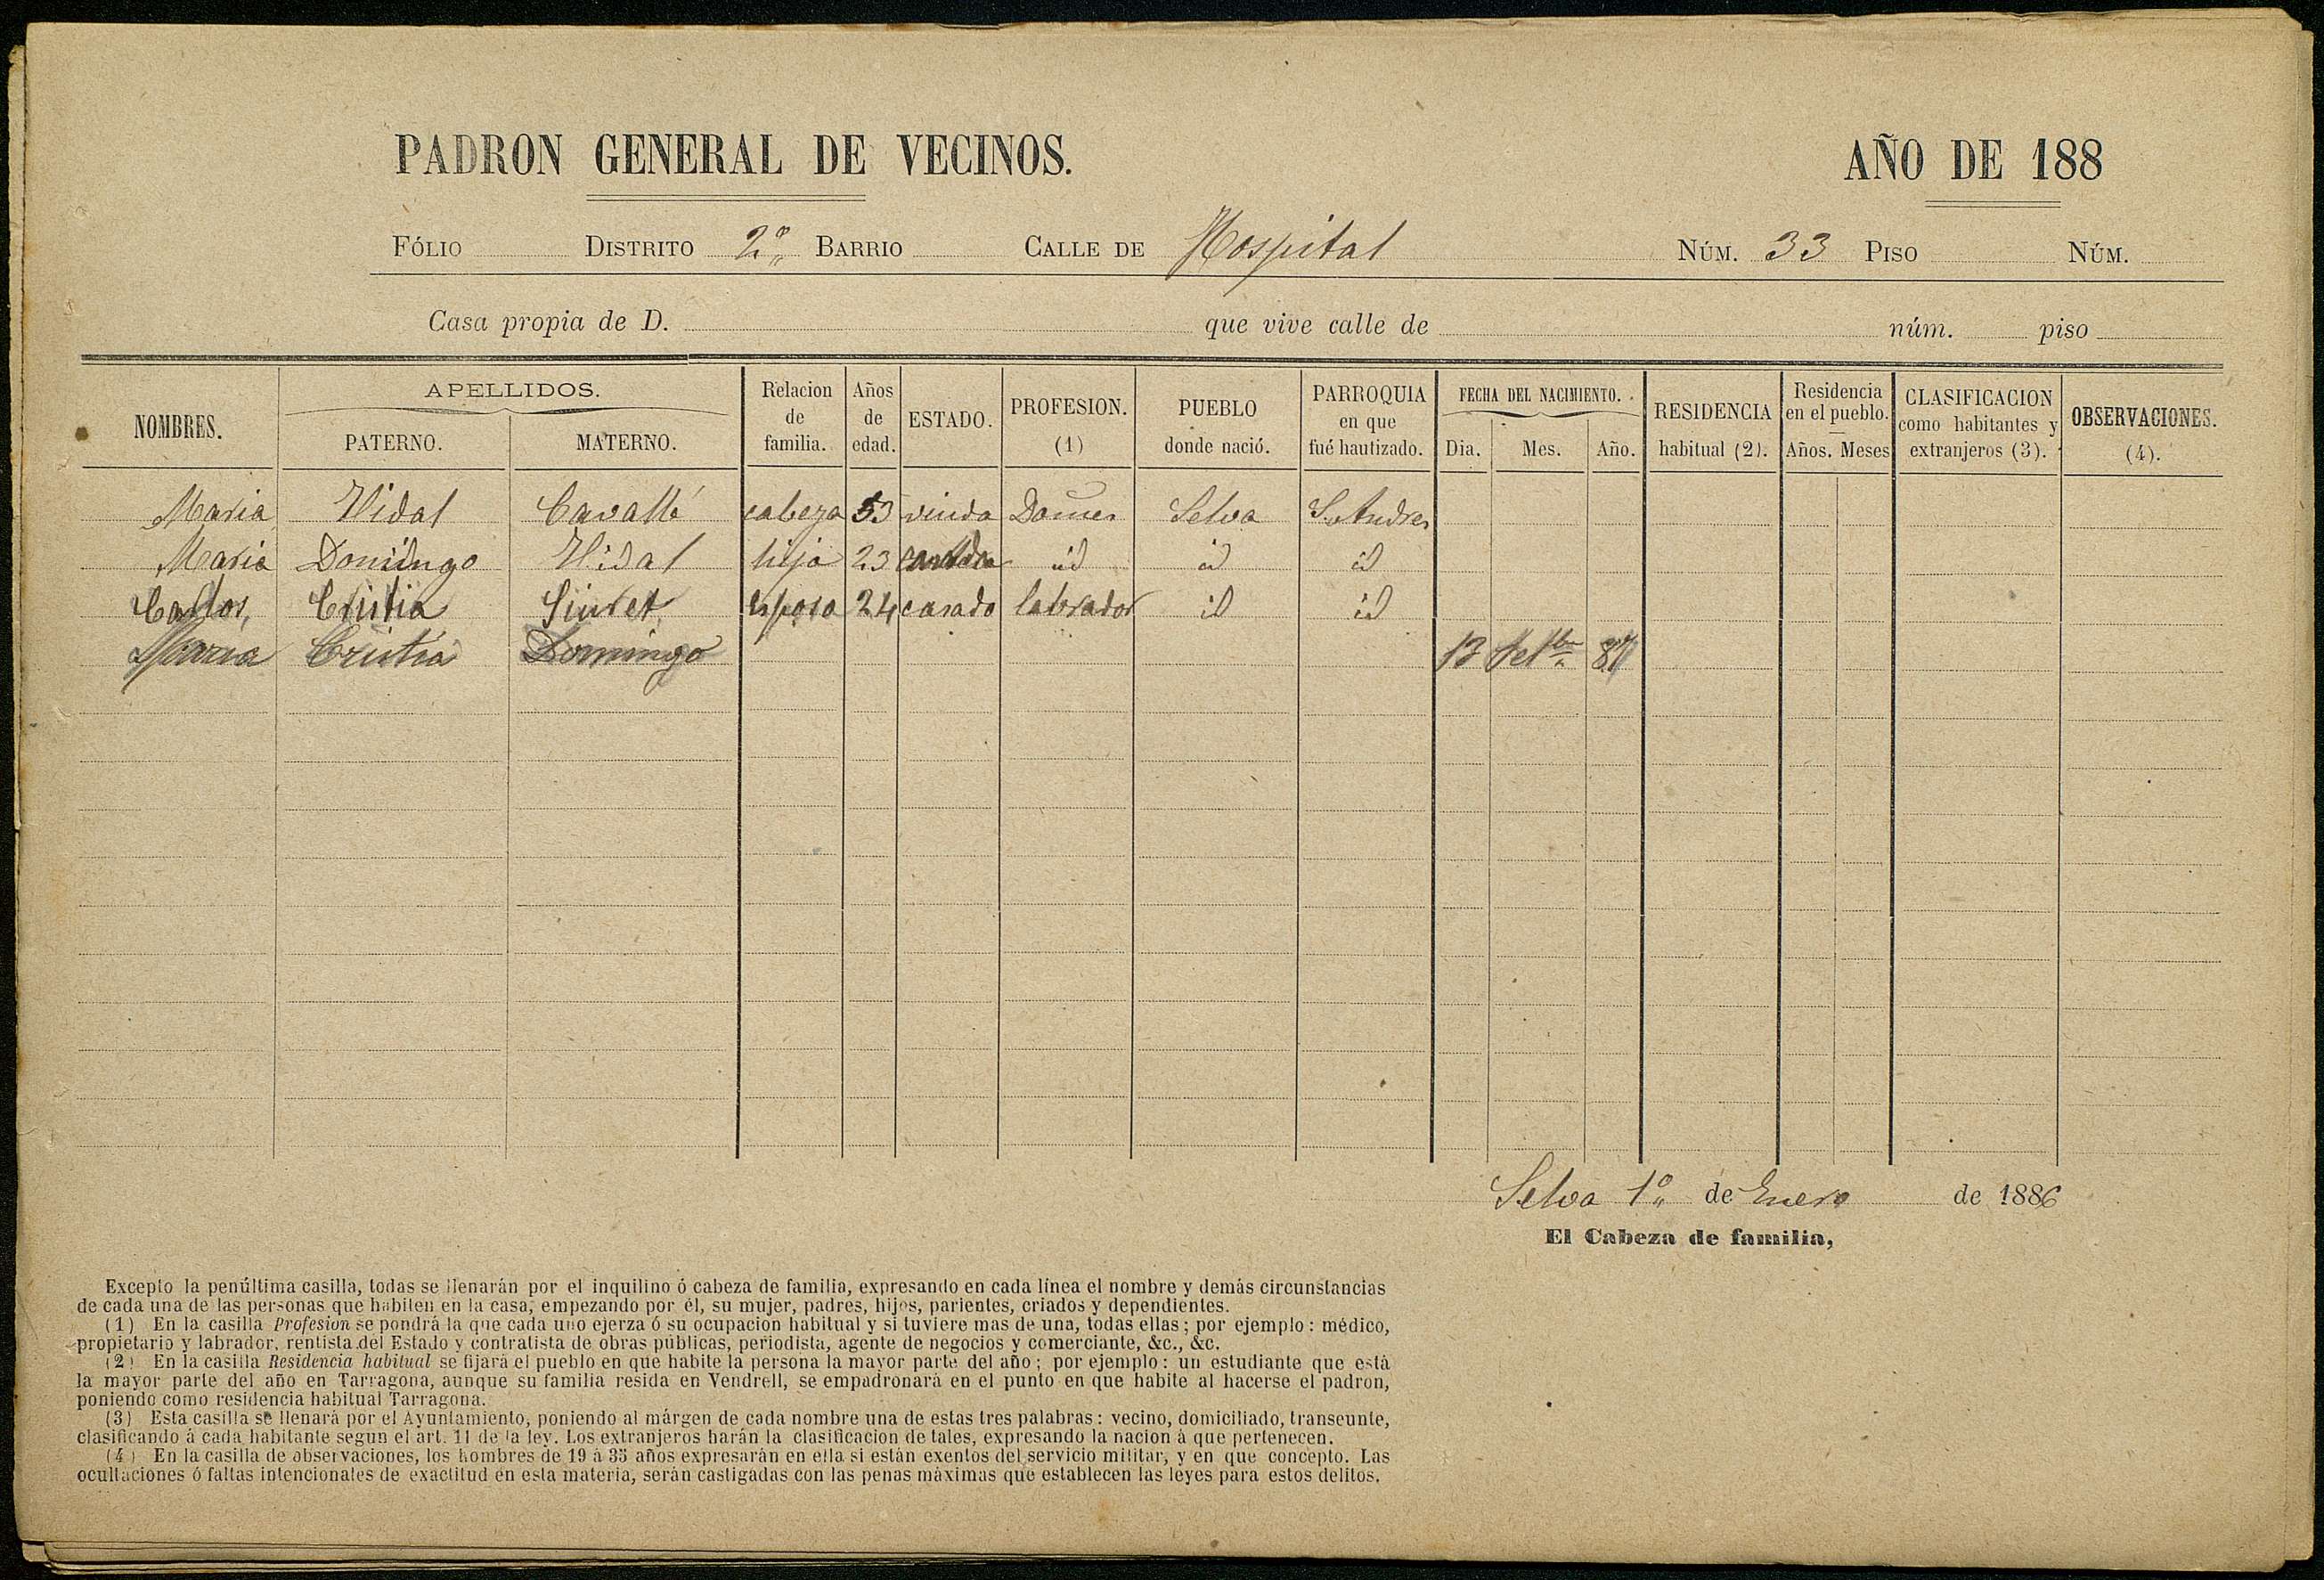 PADRON GENERAL DE VECINOS. AÑO DE 188
FÓLIO DISTRITO 2º BARRIO CALLE DE Hospital NÚM. 33 PISO NÚM.
Casa propia de D. que vive calle de núm. piso
NOMBRES. APELLIDOS. PATERNO. MATERNO. Relacion de familia. Años de edad. ESTADO. PROFESION. (1) PUEBLO donde nació. PARROQUIA en que fué bautizado. FECHA DEL NACIMIENTO. Dia. Mes. Año. RESIDENCIA habitual (2). Residencia en el pueblo. Años. Meses CLASIFICACION como habitantes y extranjeros (3). OBSERVACIONES. (4).
Maria Vidal Cavallé cabeza 53 viuda Domes Selva S. Andres
Maria Domingo Vidal hija 23 casada id id id
Carlos Cristia Siuret esposo 24 casado labrador id id
Maria Cristiá Domingo 13 Setbre 87
Selva 1º de Enero de 1886
El Cabeza de familia,
Excepto la penúltima casilla, todas se llenarán por el inquilino ó cabeza de familia, expresando en cada línea el nombre y demás circunstancias
de cada una de las personas que habiten en la casa, empezando por él, su mujer, padres, hijos, parientes, criados y dependientes.
(1) En la casilla Profesion se pondrá la que cada uno ejerza ó su ocupacion habitual y si tuviere mas de una, todas ellas; por ejemplo: médico,
propietario y labrador, rentista del Estado y contratista de obras públicas, periodista, agente de negocios y comerciante, &c., &c.
(2) En la casilla Residencia habitual se fijará el pueblo en que habite la persona la mayor parte del año; por ejemplo: un estudiante que está
la mayor parte del año en Tarragona, aunque su familia resida en Vendrell, se empadronará en el punto en que habite al hacerse el padron,
poniendo como residencia habitual Tarragona.
(3) Esta casilla se llenará por el Ayuntamiento, poniendo al márgen de cada nombre una de estas tres palabras: vecino, domiciliado, transeunte,
clasificando á cada habitante segun el art. 11 de la ley. Los extranjeros harán la clasificacion de tales, expresando la nacion á que pertenecen.
(4) En la casilla de observaciones, los hombres de 19 á 35 años expresarán en ella si están exentos del servicio militar, y en que concepto. Las
ocultaciones ó faltas intencionales de exactitud en esta materia, serán castigadas con las penas máximas que establecen las leyes para estos delitos.